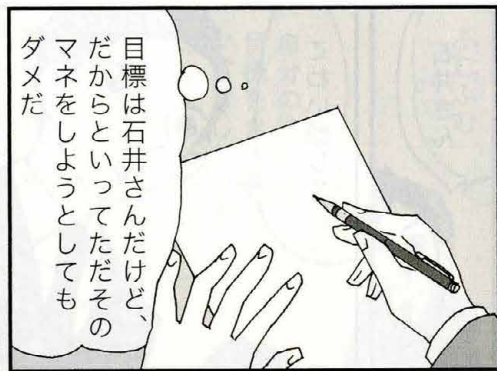 目標は石井さんだけど、
だからといってただその
マネをしようとしても
ダメだ